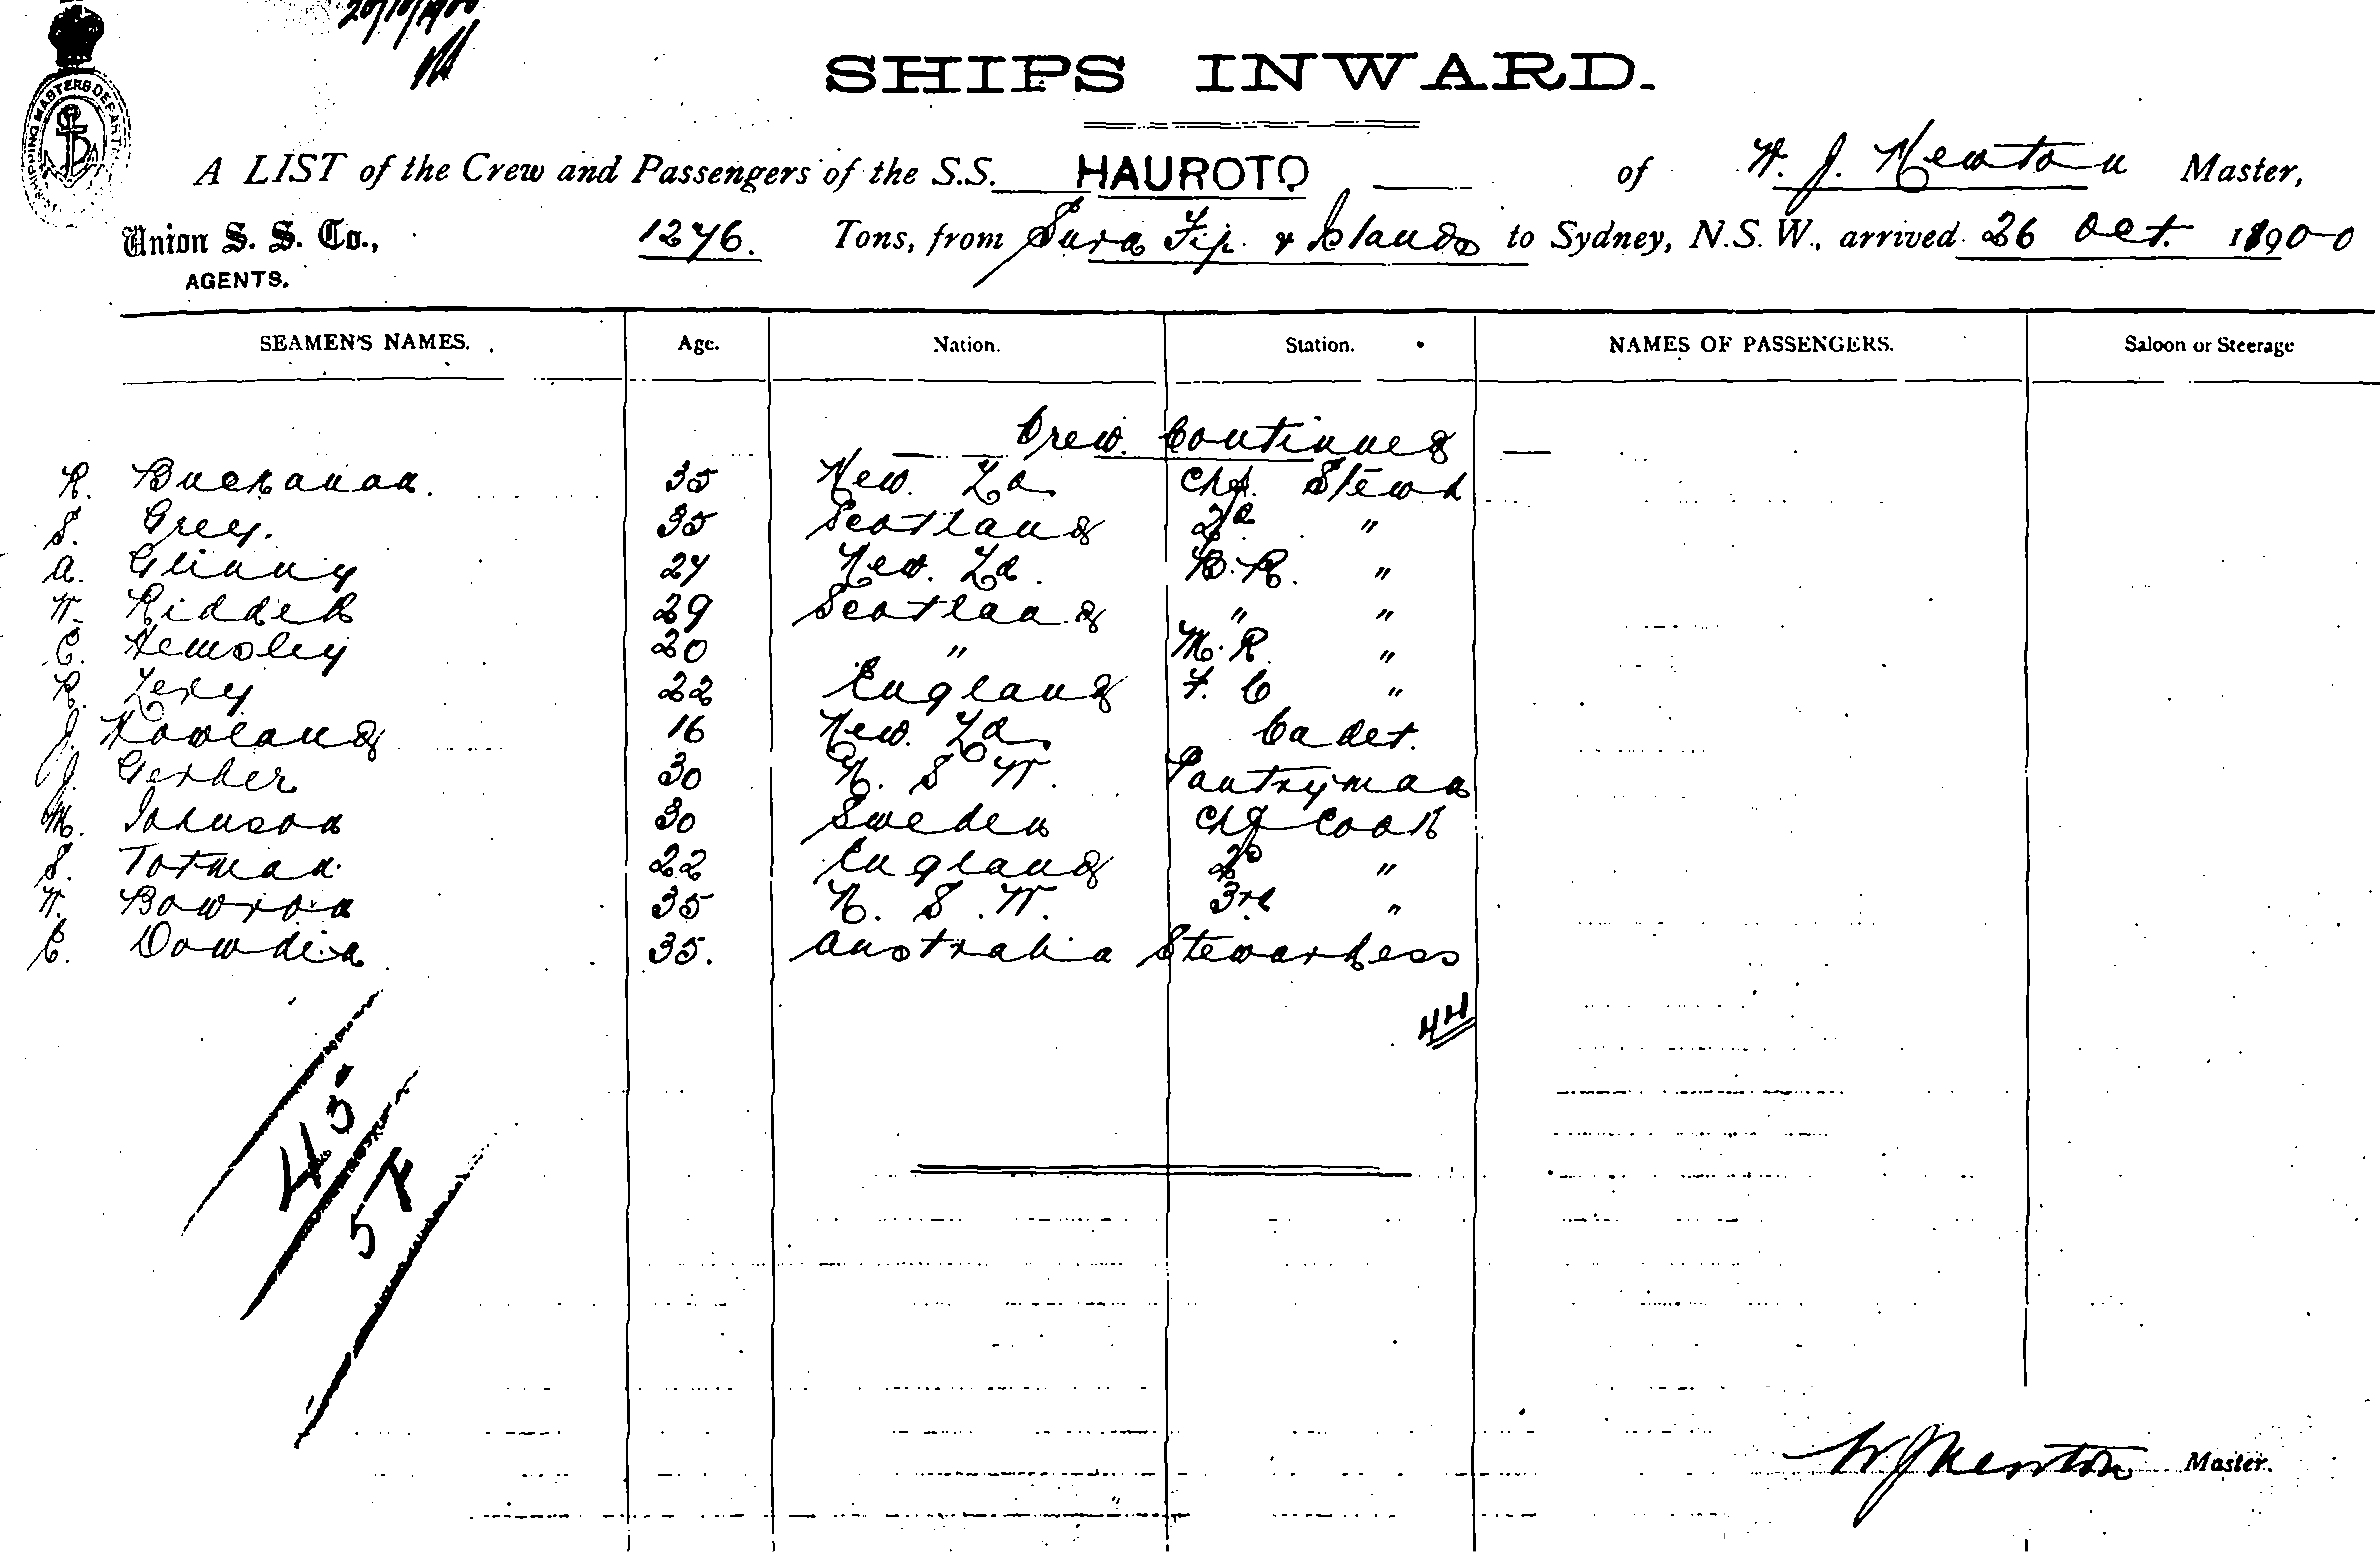 SHIPPING MASTERS DEPARTMENT
SHIPS INWARD.
A LIST of the Crew and Passengers of the S.S. HAUROTO of W. J. Newton Master,
Union S. S. Co., 1276. Tons, from Suva Fiji & Islands to Sydney, N.S.W., arrived 26 Oct. 1900
AGENTS.
SEAMEN'S NAMES. Age. Nation. Station. NAMES OF PASSENGERS. Saloon or Steerage
Crew. Continued
R. Buchanan. 35 New. Zd Chf. Stewd
S. Grey. 35 Scotland 2d "
A. Glinny 27 New. Zd. B.R. "
W. Riddell 29 Scotland " "
C. Hemsley 20 " M.R. "
R. Levy 22 England F. C "
J. Rowland 16 New. Zd Cadet.
J. Gerber 30 N. S W. Pantryman
M. Johnson 30 Sweden Chf Cook
S. Totman 22 England 2d "
W. Bowron 35 N. S. W. 3rd "
C. Dowdia 35. Australia Stewardess
44
43
57
W J Newton Master.